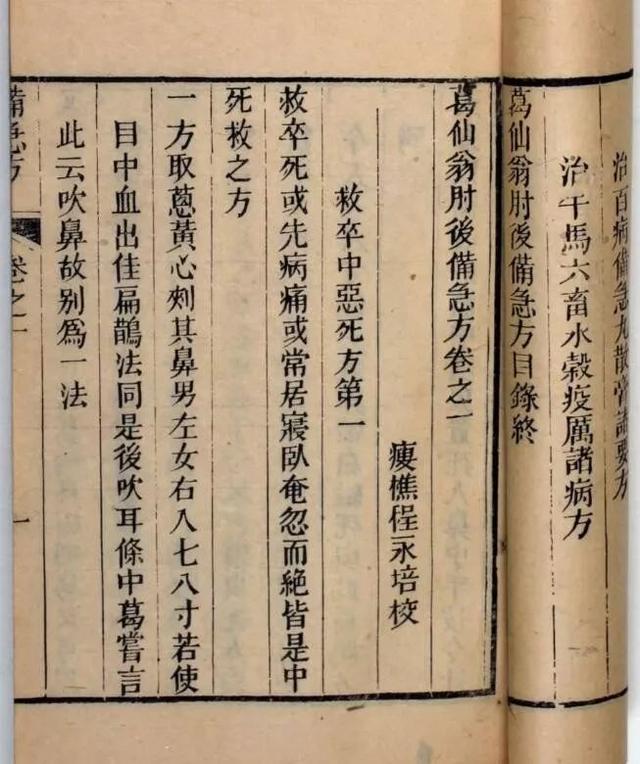 治百病備急丸散膏諸要方
治牛馬六畜水穀疫厲諸病方
葛仙翁肘後備急方目錄終
葛仙翁肘後備急方卷之一
瘦樵程永培校
救卒中惡死方第一
救卒死或先病痛或常居寢臥奄忽而絕皆是中
死救之方
一方取蔥黃心刺其鼻男左女右入七八寸若使
目中血出佳扁鵲法同是後吹耳條中葛嘗言
此云吹鼻故別爲一法
備急方
卷之一
一